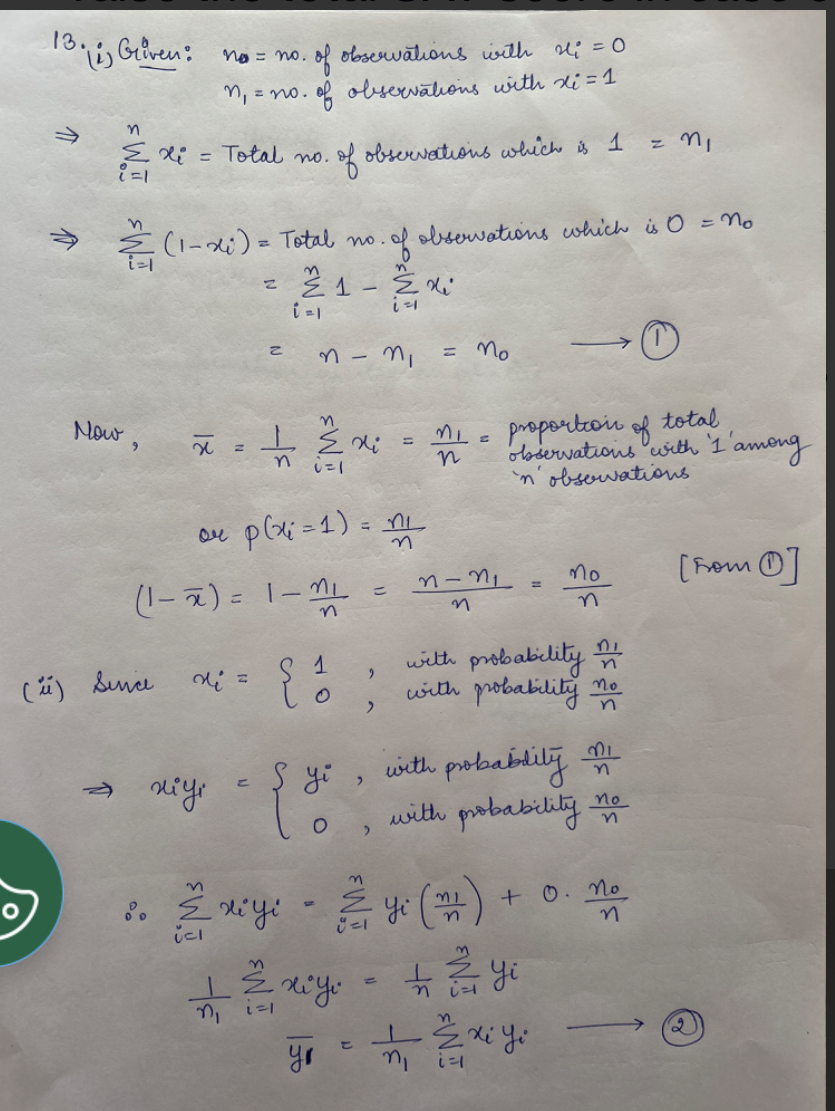 13. (i) Given: n₀ = no. of observations with xi = 0
n₁ = no. of observations with xi = 1
⇒ ∑_{i=1}^{n} xi = Total no. of observations which is 1 = n₁
⇒ ∑_{i=1}^{n} (1-xi) = Total no. of observations which is 0 = n₀
= ∑_{i=1}^{n} 1 - ∑_{i=1}^{n} xi
= n - n₁ = n₀ → ①
Now, x̄ = 1/n ∑_{i=1}^{n} xi = n₁/n = proportion of total
observations with '1' among
'n' observations
or p(xi = 1) = n₁/n
(1 - x̄) = 1 - n₁/n = (n - n₁)/n = n₀/n [From ①]
(ii) Since xi = { 1 , with probability n₁/n
0 , with probability n₀/n
⇒ xiyi = { yi , with probability n₁/n
0 , with probability n₀/n
∴ ∑_{i=1}^{n} xiyi = ∑_{i=1}^{n} yi (n₁/n) + 0. n₀/n
1/n₁ ∑_{i=1}^{n} xiyi = 1/n ∑_{i=1}^{n} yi
ȳ₁ = 1/n₁ ∑_{i=1}^{n} xi yi → ②